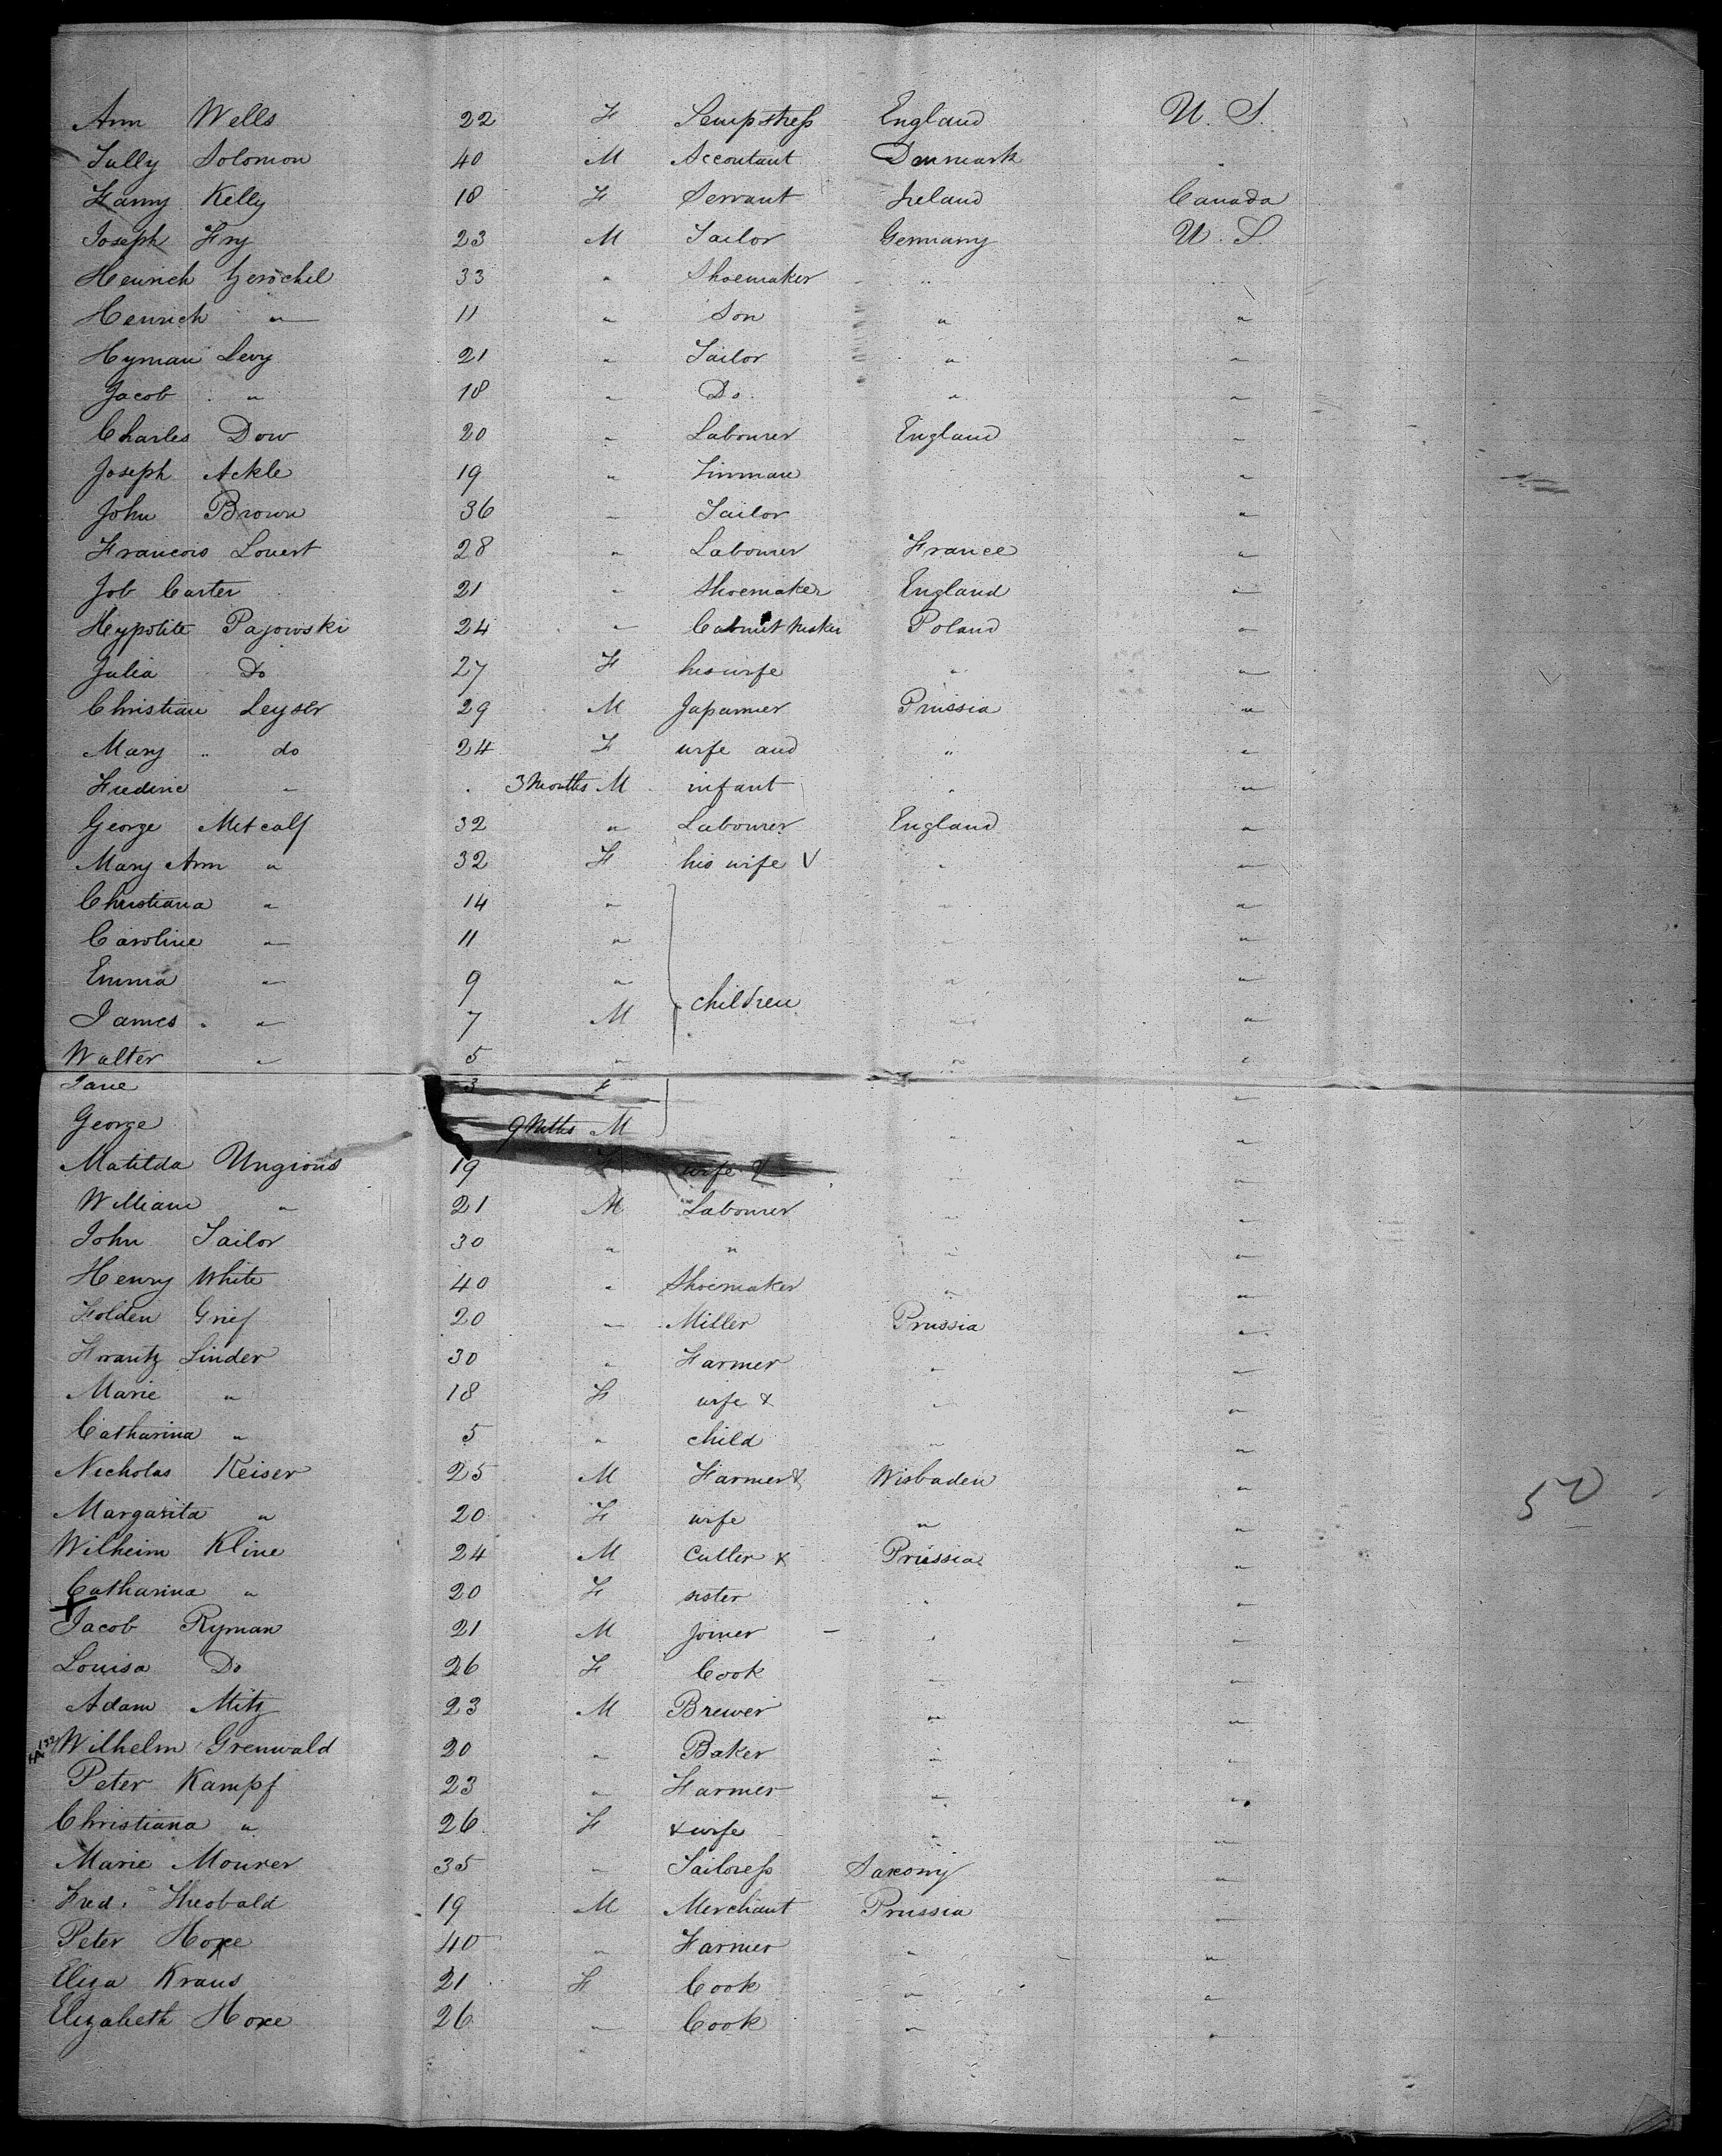 Ann Wells 22 F Sempstress England U. S.
Tully Solomon 40 M Accoutant Denmark "
Fanny Kelly 18 F Servant Ireland Canada
Joseph Fry 23 M Tailor Germany U. S.
Heinrich Gerschel 33 " Shoemaker " "
Henrich " 11 " Son " "
Hyman Levy 21 " Tailor " "
Jacob " 18 " Do. " "
Charles Dow 20 " Labourer England "
Joseph Ackle 19 " Tinman "
John Brown 36 " Tailor "
Francois Louert 28 " Labourer France "
Job Carter 21 " Shoemaker England "
Hypolite Pajowski 24 " Cabinet Maker Poland "
Julia Do 27 F his wife " "
Christian Leyser 29 M Japanner Prussia "
Mary " do 24 F wife and " "
Frederic " 3 Months M infant " "
George Metcalf 32 " Labourer England "
Mary Ann " 32 F his wife & " "
Christiana " 14 " " "
Caroline " 11 " " "
Emma " 9 " " "
James " 7 M children " "
Walter " 5 " " "
Jane 3 F " "
George 9 Mths M " "
Matilda Ungious 19 F wife & " "
William " 21 M Labourer " "
John Tailor 30 " " " "
Henry White 40 " Shoemaker " "
Holden Grief 20 " Miller Prussia "
Frantz Linder 30 " Farmer " "
Marie " 18 F wife & " "
Catharina " 5 " child " "
Nicholas Keiser 25 M Farmer & Wisbaden "
Margarita " 20 F wife " " 50
Wilheim Kline 24 M Cutler & Prussia "
Catharina " 20 F sister " "
Jacob Ryman 21 M Joiner " "
Louisa Do 26 F Cook " "
Adam Mitz 23 M Brewer " "
Wilhelm Grenwald 20 " Baker " "
Peter Kampf 23 " Farmer " "
Christiana " 26 F & wife " "
Marie Mourer 35 " Tailoress Saxony "
Fred. Theobald 19 M Merchant Prussia "
Peter Hoxe 40 " Farmer " "
Eliza Kraus 21 F Cook " "
Elizabeth Hoxe 26 " Cook " "